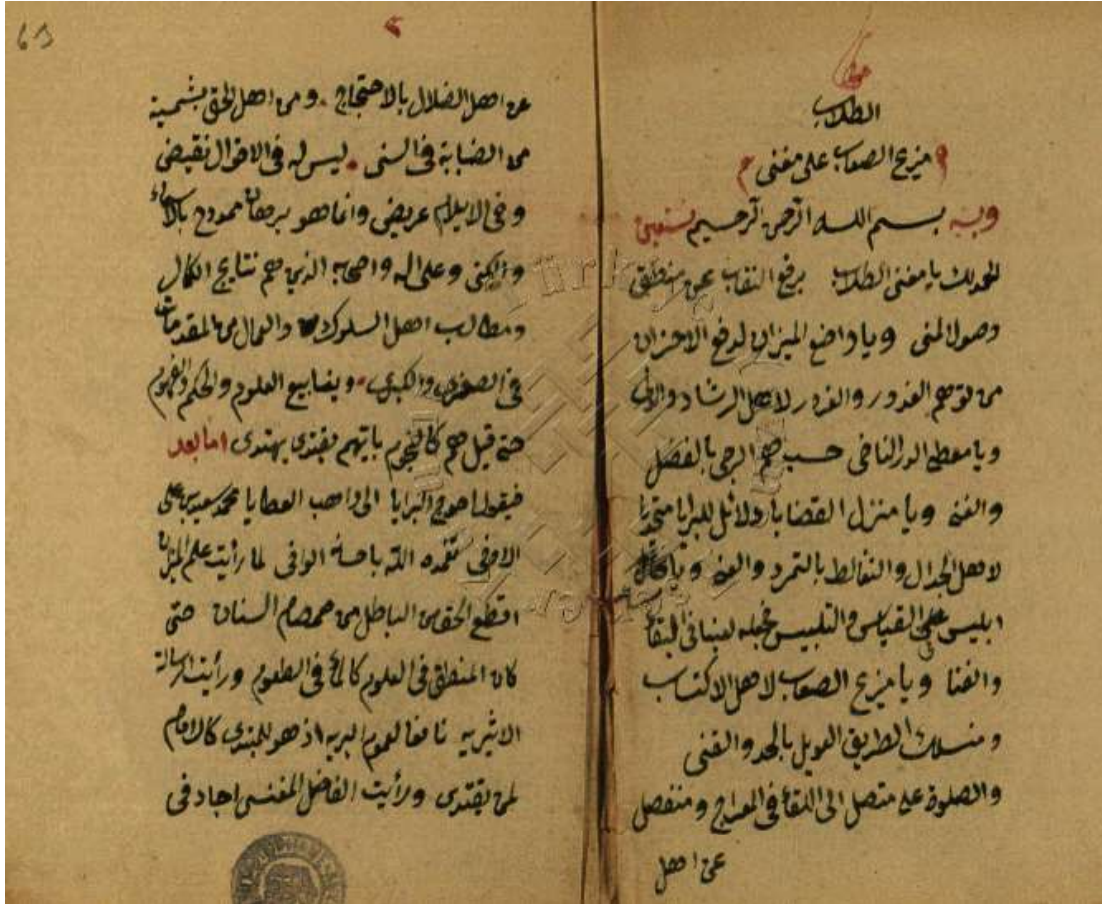 الطلاب
مزيج الصعاب على مغنى
وبه بسم الله الرحمن الرحيم نستعين
الحمد لك يا مغنى الطلاب برفع النقاب عن منطق
وصول المنى ويا واضع الميزان لدفع الاحزان
من توهم الغدور والغرور لاهل الرشاد و
ويا معطى الدر الناضى حسب هم الرجى بالفضل
والغنى ويا منزل القضايا دلائل للبرايا متحديا
لاهل الجدال والتغالط بالتمرد والعنه ويا
ابليس على القياس والتلبيس فجعله لعينا فى البقاء
والفنا ويا مزيج الصعاب لاهل الاكتساب
ومنسلك الطريق العويل بالجد والغنى
والصلوة على متصل الى اللقاء فى المعراج ومنفصل
عن اهل
عن اهل الضلال بالاحتجاج ومن اهل الحق بشمية
من الضبابة فى السنى ليس له فى الاقوال نقيض
وفى الايلام عريض وانما هو برهان ممدوح بالاسماء
والكنى وعلى اله واصحابه الذين هم نتايج الكمال
ومطالب اهل السلوك والعمال من المقدمات
فى الصغرى والكبرى وينابيع العلوم والحكم والفهوم
حتى قيل هم كالنجوم بايهم يقتدى يهتدى اما بعد
فيقول احوج البرايا الى واهب العطايا محمد سعيد بن على
الارضى تغمده الله باحسانه الوافى لما رأيت علم الميزان
اقطع الحق من الباطل من صمصام السنان حتى
كان المنطق فى العلوم كالملح فى الطعوم ورأيت الرسالة
الاثيرية نافعا لعموم البرية اذ هو للمبتدى كالامام
لمن يقتدى ورأيت الفاضل المغنسى اجاد فى